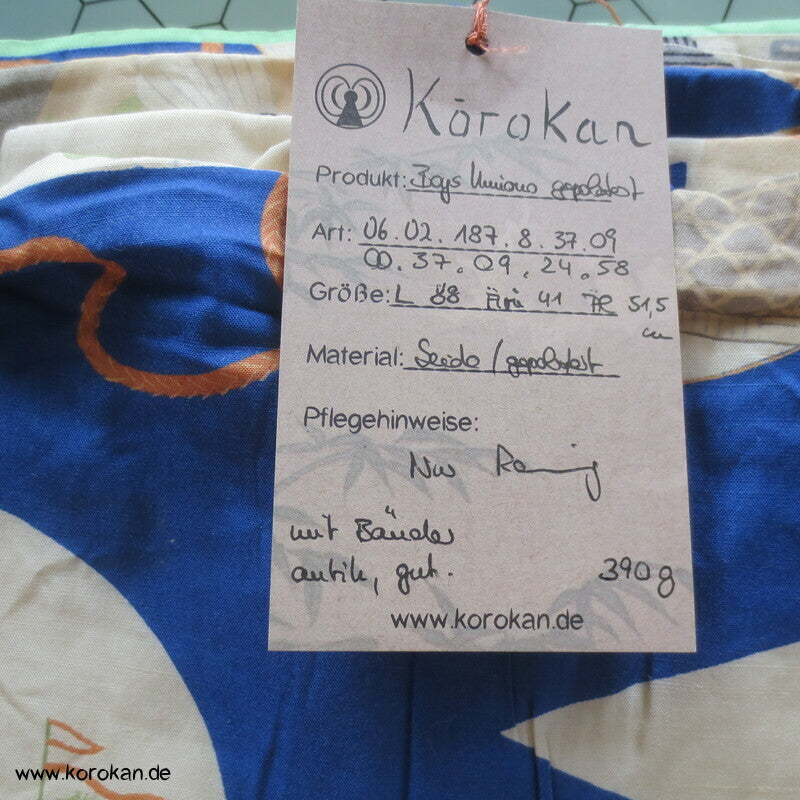 Kōrokan
Produkt: Boys Kimono gepolstert
Art: 06.02.187.8.37.09
00.37.09.24.58
Größe: L 88 Ärm 41 TR 51,5
cm
Material: Seide / gepolstert
Pflegehinweise:
Nur Reinig
mit Bänder
antik, gut.
390g
www.korokan.de
www.korokan.de